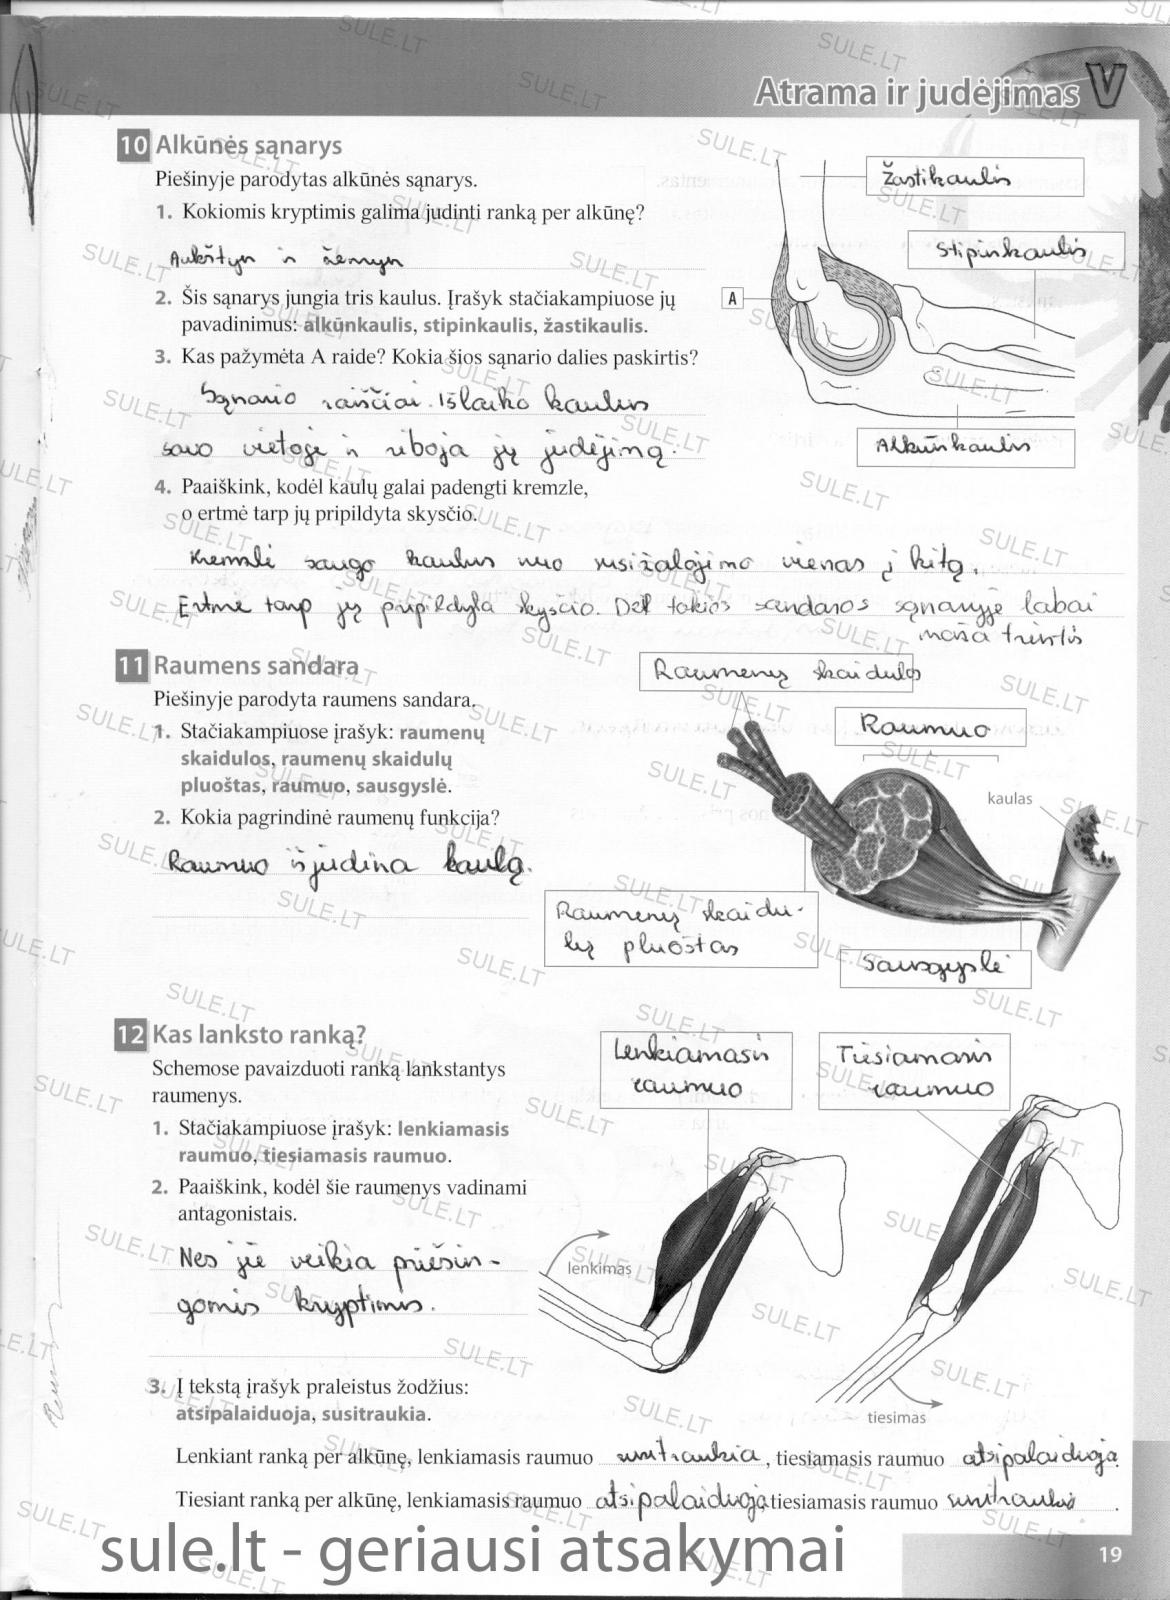 Atrama ir judėjimas V
10 Alkūnės sąnarys
Piešinyje parodytas alkūnės sąnarys.
1. Kokiomis kryptimis galima judinti ranką per alkūnę?
Aukštyn ir žemyn
2. Šis sąnarys jungia tris kaulus. Įrašyk stačiakampiuose jų
pavadinimus: alkūnkaulis, stipinkaulis, žastikaulis.
3. Kas pažymėta A raide? Kokia šios sąnario dalies paskirtis?
Sąnario raiščiai. Išlaiko kaulus
savo vietoje ir riboja jų judėjimą.
Žastikaulis
Stipinkaulis
A
Alkūnkaulis
4. Paaiškink, kodėl kaulų galai padengti kremzle,
o ertmė tarp jų pripildyta skysčio.
Kremzlė saugo kaulus nuo susižalojimo vienas į kitą.
Ertmė tarp jų pripildyta skysčio. Dėl tokios sandaros sąnaryje labai
maža trintis
11 Raumens sandara
Piešinyje parodyta raumens sandara.
1. Stačiakampiuose įrašyk: raumenų
skaidulos, raumenų skaidulų
pluoštas, raumuo, sausgyslė.
2. Kokia pagrindinė raumenų funkcija?
Raumuo išjudina kaulą.
Raumenų skaidulos
Raumuo
kaulas
Raumenų skaidu-
lų pluoštas
Sausgyslė
12 Kas lanksto ranką?
Schemose pavaizduoti ranką lankstantys
raumenys.
1. Stačiakampiuose įrašyk: lenkiamasis
raumuo, tiesiamasis raumuo.
2. Paaiškink, kodėl šie raumenys vadinami
antagonistais.
Nes jie veikia priešin-
gomis kryptimis.
Lenkiamasis
raumuo
Tiesiamasis
raumuo
lenkimas
tiesimas
3. Į tekstą įrašyk praleistus žodžius:
atsipalaiduoja, susitraukia.
Lenkiant ranką per alkūnę, lenkiamasis raumuo susitraukia, tiesiamasis raumuo atsipalaiduoja.
Tiesiant ranką per alkūnę, lenkiamasis raumuo atsipalaiduoja, tiesiamasis raumuo susitraukia.
sule.lt - geriausi atsakymai
19
SULE.LT